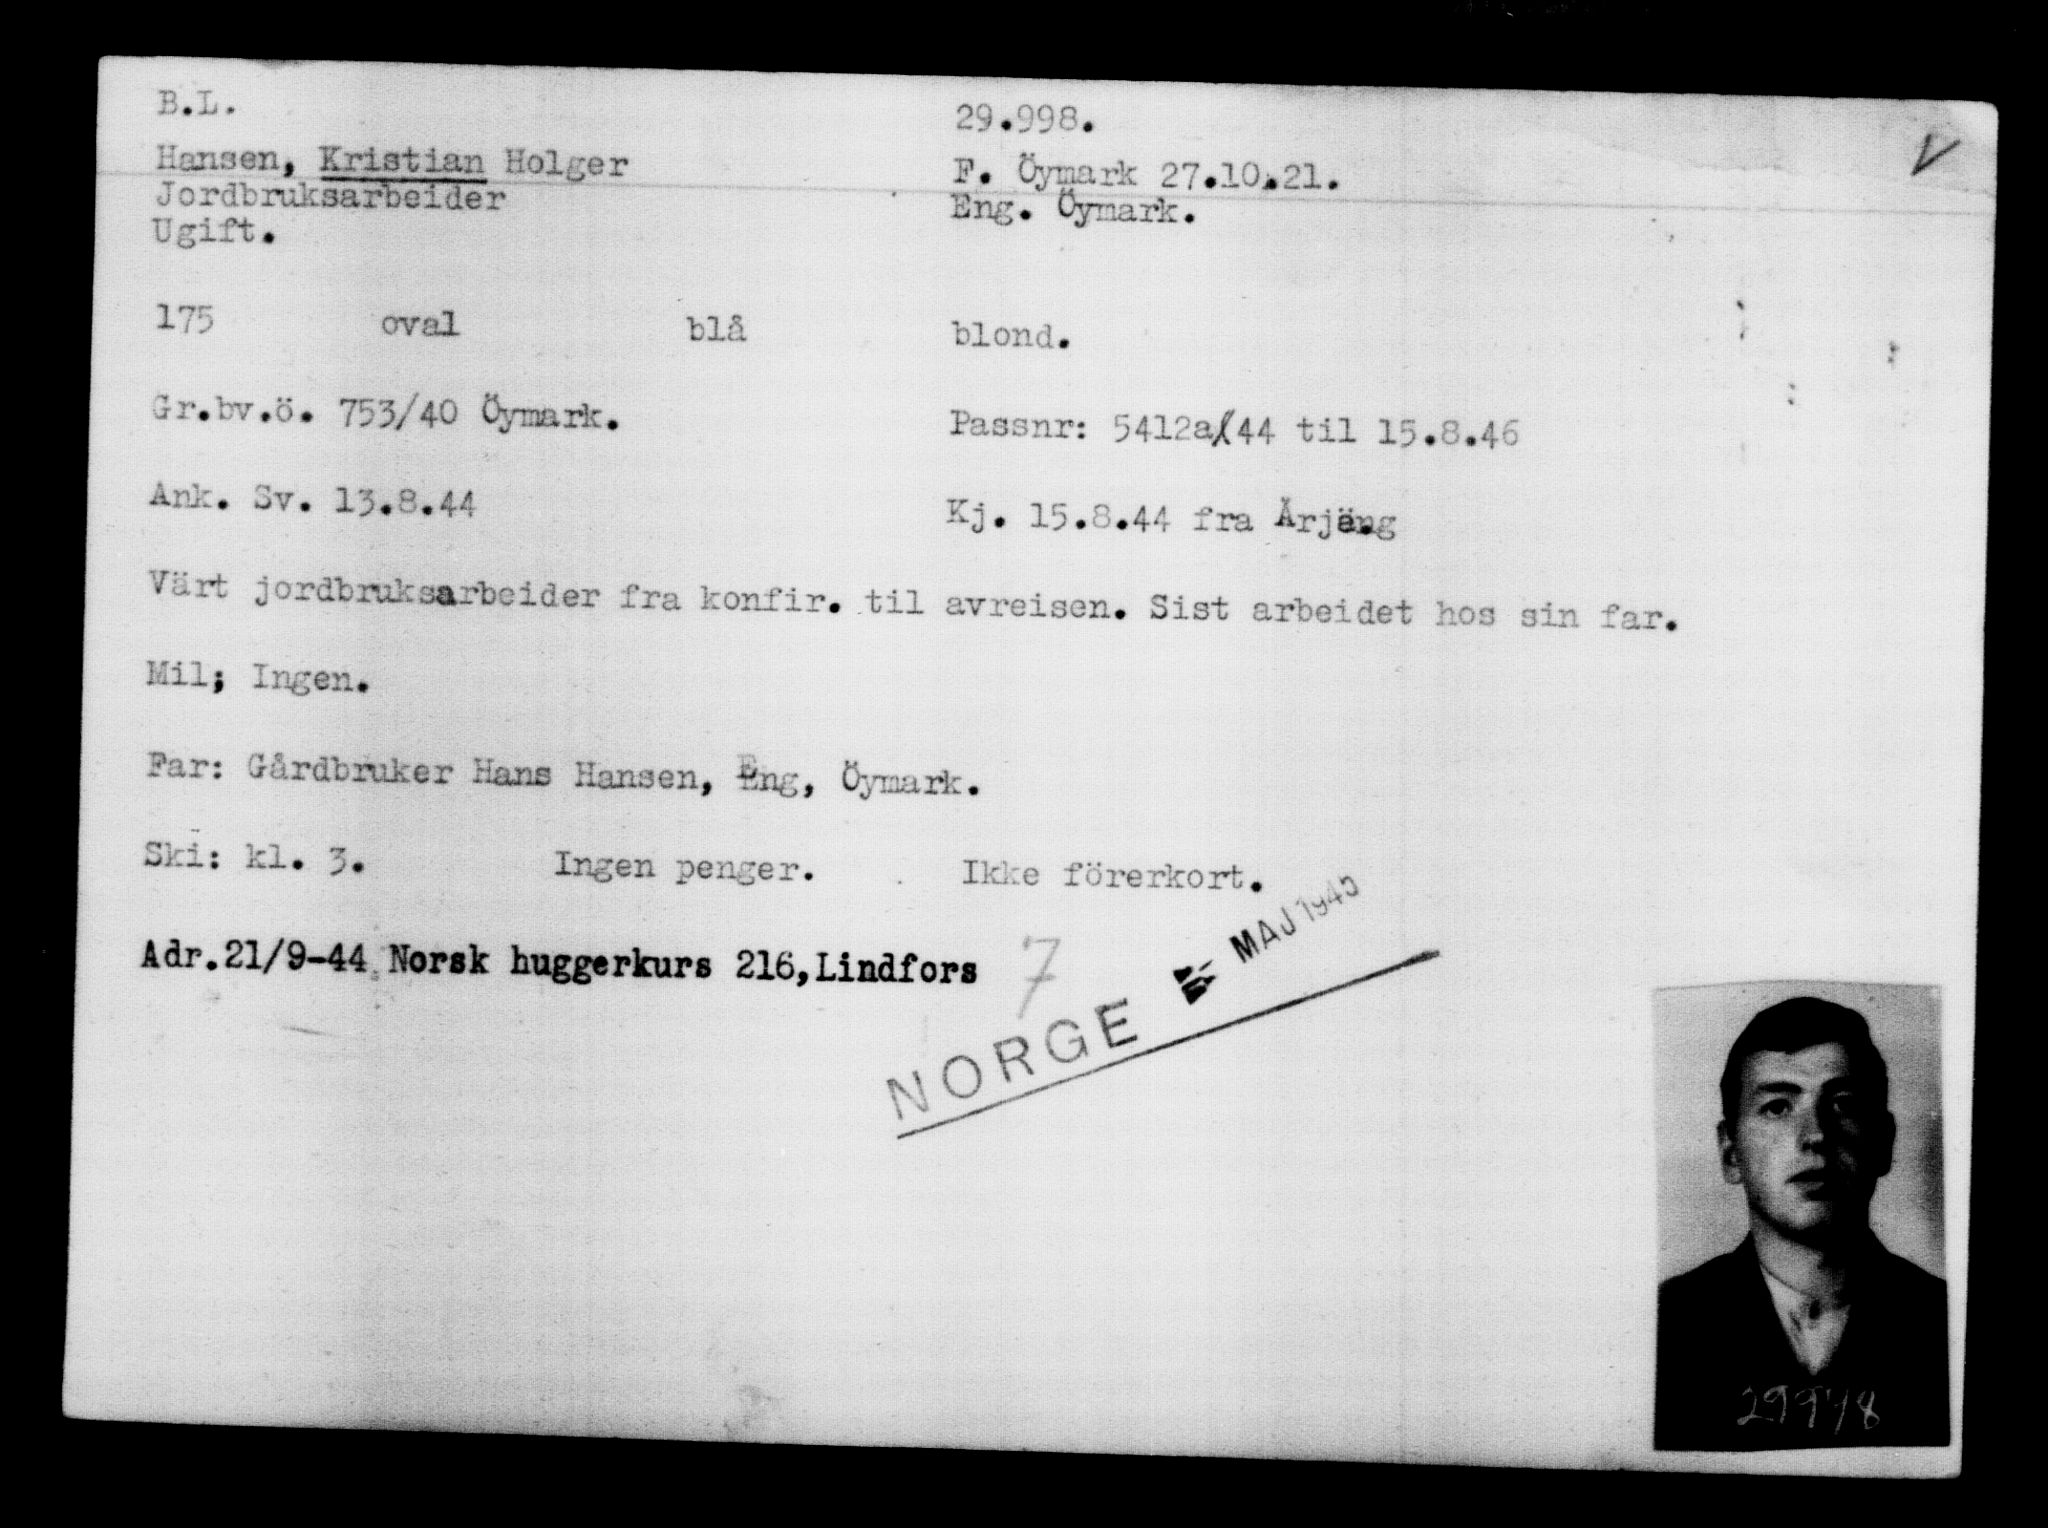 B.L. 29.998. V
Hansen, Kristian Holger F. Öymark 27.10.21.
Jordbruksarbeider Eng. Öymark.
Ugift.
175 oval blå blond.
Gr.bv.ö. 753/40 Öymark. Passnr: 5412a/44 til 15.8.46
Ank. Sv. 13.8.44 Kj. 15.8.44 fra Årjäng
Värt jordbruksarbeider fra konfir. til avreisen. Sist arbeidet hos sin far.
Mil; Ingen.
Far: Gårdbruker Hans Hansen, Eng, Öymark.
Ski: kl. 3. Ingen penger. Ikke förerkort.
Adr.21/9-44 Norsk huggerkurs 216,Lindfors 7
NORGE MAJ 1945
29998